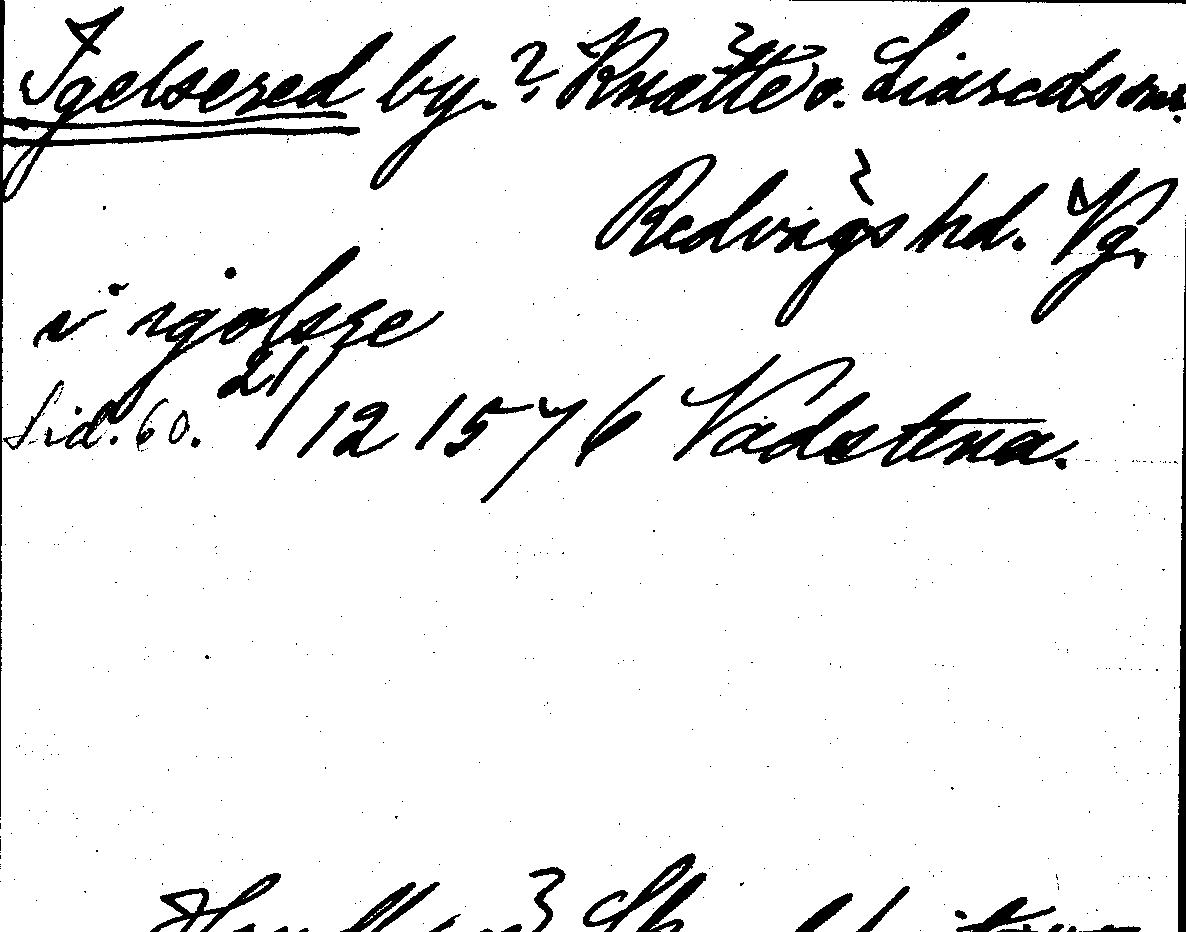 Igelsered by. ? Knätte o. Liareds snr.
Redvägs hd. Vg.
i igolsze
Sid. 60. 21/12 1576 Vadstena.